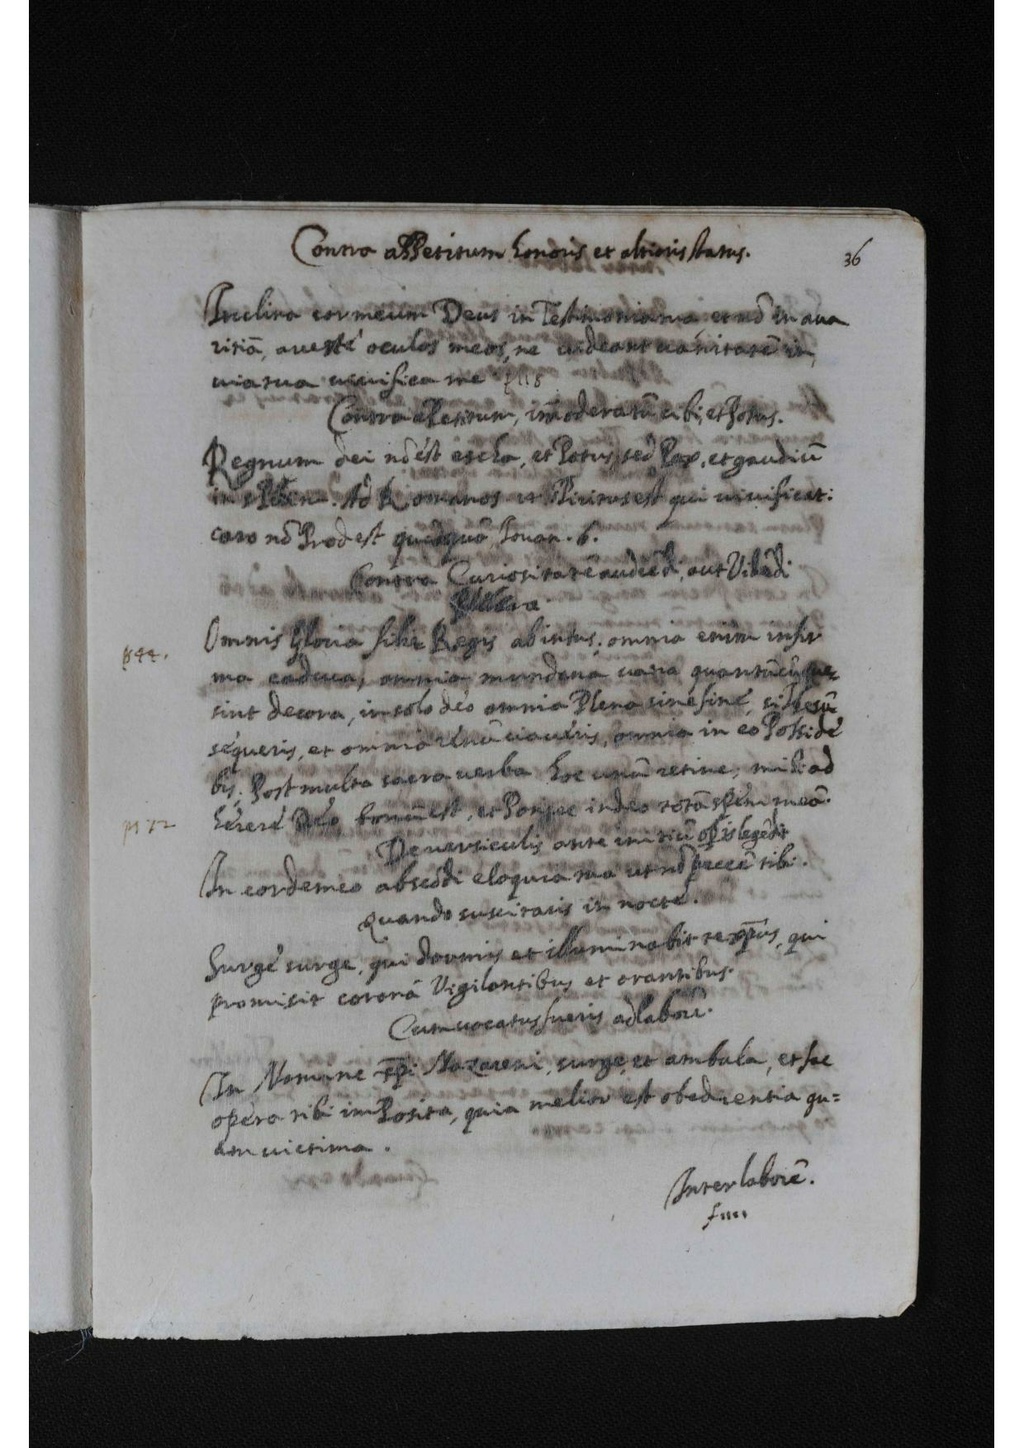 Contra appetitum honoris et altioris status.
36
Inclina cor meum Deus in Testimonia tua et nō in aua
ritiā, averté oculos meos, ne videant vanitatē in
via tua vivifica me p 118
Contra appetitum, immoderatū cibi, et potus.
Regnum dei nō ést escha, et Potus, sed Pax, et gaudiū
in Ad Romanos 14 Spiritus est qui vivificat:
caro nō Prodest quidquā Iouan. 6.
Contra Curiositatē audiēdi, aut Vidēdi
p 44.
Omnis gloria filie Regis ab intus, omnia enim infir
ma caduca, omnia mundana vana quantūcūque
sint decora, in solo déo omnia Plena sine finé, si Iesū
séqueris, et omnia renūciavéris, omnia in eo Posside
bis. Post multa sacra verba hoc unū retine, mihi ad
p 72
hérére Déo bonūm est, et Ponere in deo totā spém meā.
De versiculis ante initiū opis legēdis
In corde méo abscōdi eloquia tua ut nō peccē tibi.
Quando suscitaris in nocté.
Surgé surge, qui dormis et illuminabit te xp̄us, qui
promisit coronā Vigilantibus et orantibus.
Cum vocatus fueris ad laborē.
In Nomine xp̄i Nazareni, surge, et ambula, et fac
opéra tibi imposita, quia melior est obedientia qu=
am victima.
Inter laborē.